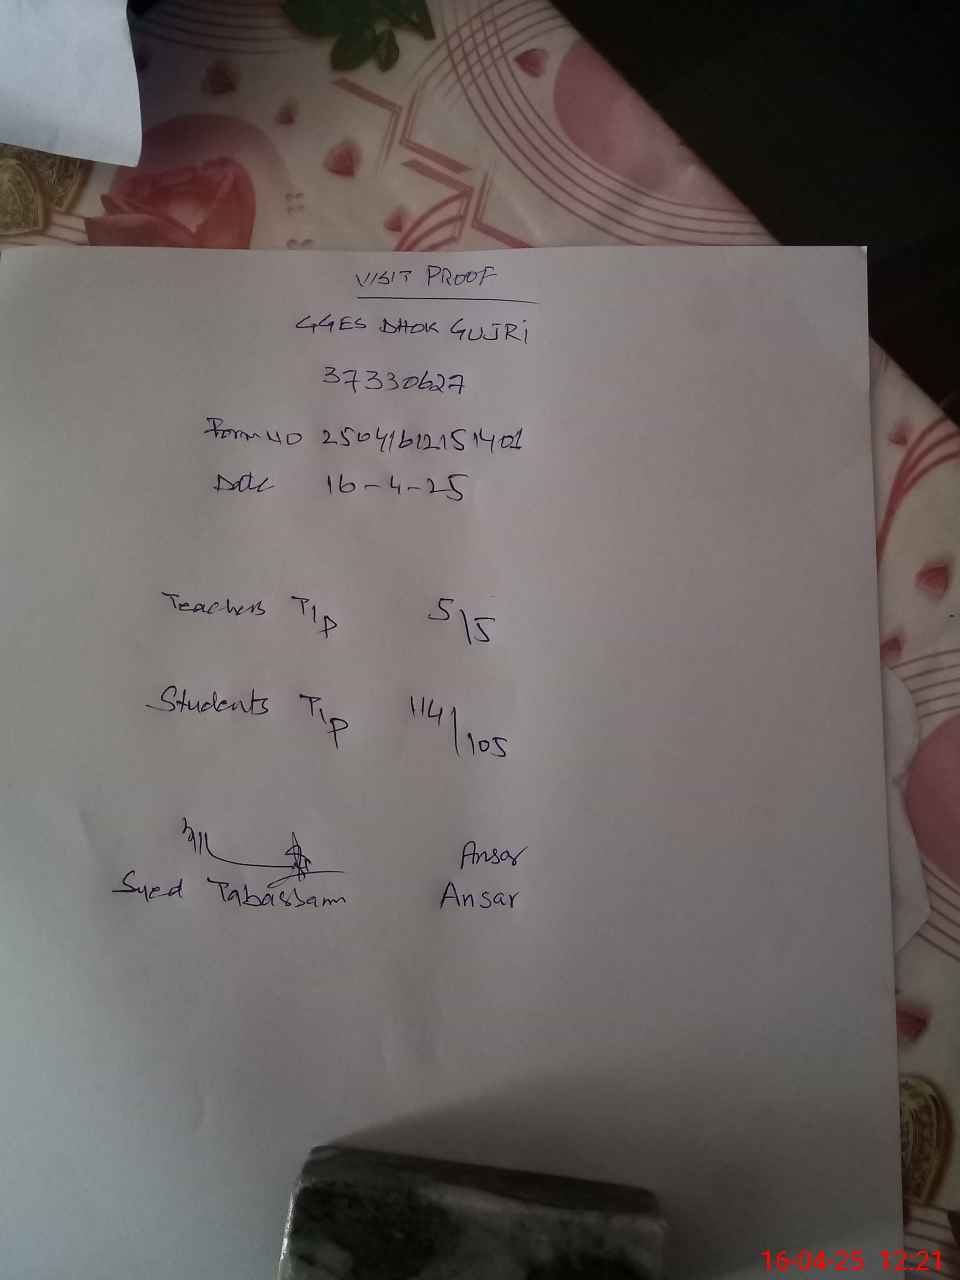 VISIT PROOF
GGES DHOK GUJRI
37330627
Form NO 25041612151401
Date 16-4-25
Teachers T/P 5/5
Students T/P 114/105
Ansar
Syed Tabassam Ansar
16-04-25 12:21